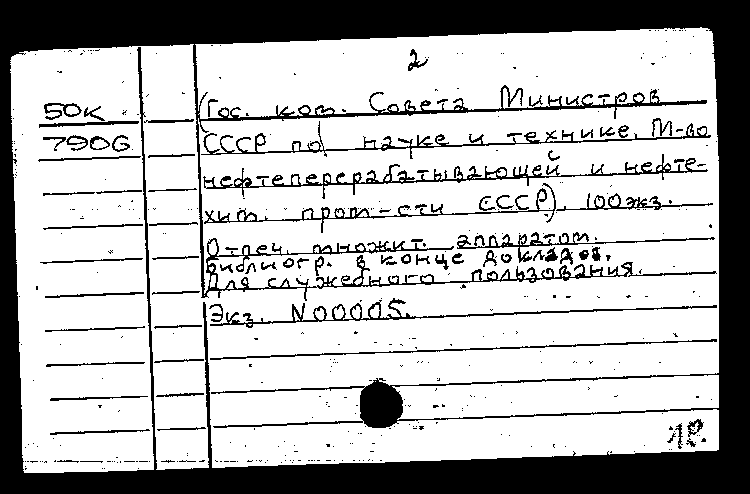 2
50К (Гос. ком. Совета Министров
7906 СССР по науке и технике, М-во
нефтеперерабатывающей и нефте-
хим. пром-сти СССР). 100экз.
Отпеч. множит. аппаратом.
Библиогр. в конце докладов.
Для служебного пользования.
Экз. N00005.